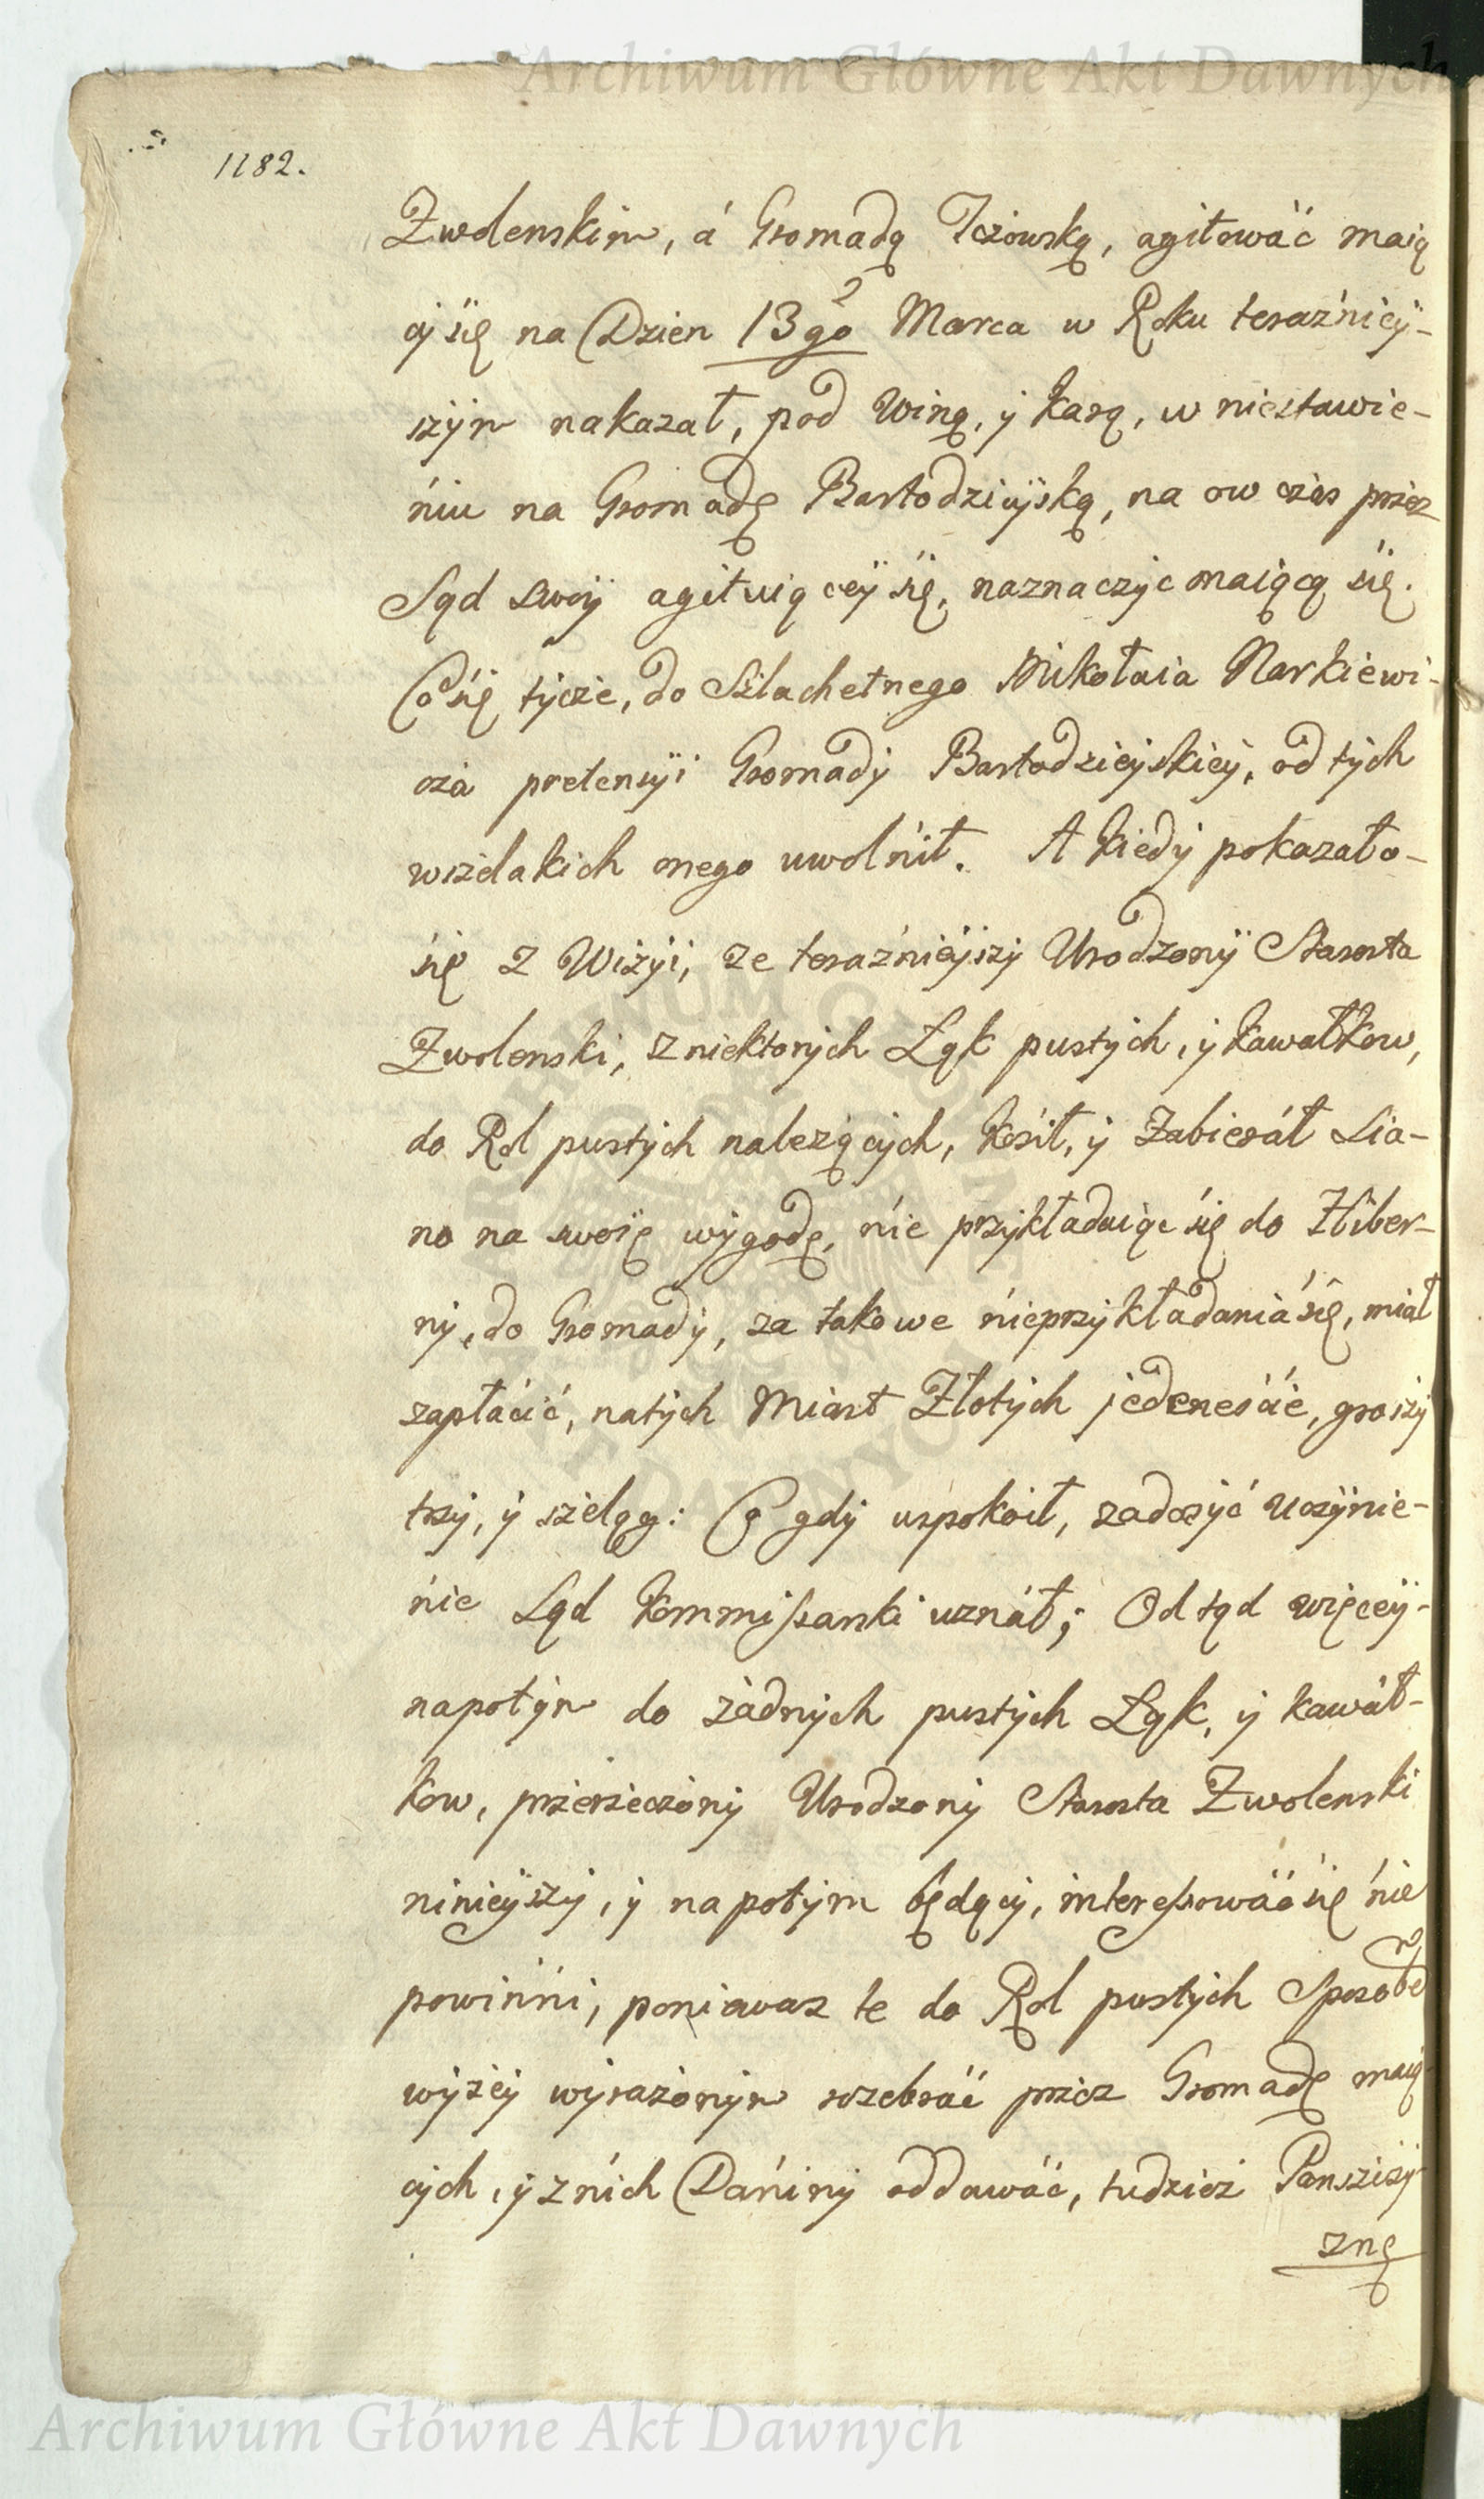 Archiwum Główne Akt Dawnych
1182.
Zwolenskim, á Gromadą Tczowską, agitowáć maią
cÿ się na Dzien 13go Marca w Roku teraźnieÿ-
szÿm nakazał, pod Winą, ÿ karą, w niestawie-
ńiu na Gromadę Bartodzieÿską, na ow czas przez
Sąd swóÿ agituiąceÿ się, naznaczÿc maiącą się.
Co się tÿcze, do Szlachetnego Mikołaia Narkiewi-
cza pretensÿi Gromadÿ Bartodzieÿskieÿ, od tÿch
wszelakich onego uwolńił. A kiedÿ pokazało-
się z Wizÿi, ze teraźnieÿszÿ Urodzonÿ Starosta
Zwolenski, z niektorÿch Łąk pustÿch, ÿ kawałkow,
do Rol pustÿch nalezącÿch, kośił, ÿ Zabierał Sia-
no na swoię wÿgodę, ńie przÿkładaiąc się do Hiber-
nÿ, do Gromadÿ, za takowe ńieprzÿkładania się, miał
zapłácić, natÿch Miast Złotÿch jedeneście, groszÿ
trzÿ, ÿ szeląg: Co gdÿ uspokoił, zadosÿć uczÿnie-
ńie Sąd Kommissarski uznał; Odtąd więceÿ-
napotÿm do żadnÿch pustÿch Łąk, ÿ kawáł-
kow, przerzeczonÿ Urodzonÿ Starosta Zwolenski
ninieÿszÿ, ÿ na potÿm będącÿ, interessowáć się ńie
powinńi, poniewaz te do Rol pustÿch Sposobem
wÿżeÿ wÿrażonÿm rozebráć przez Gromadę maią-
cÿch, ÿ z ńich Dańinÿ oddawáć, tudzież Panszczÿ-
znę
Archiwum Główne Akt Dawnych